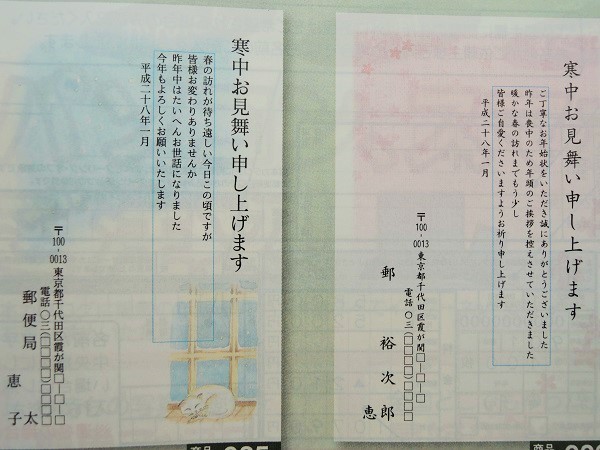 寒中お見舞い申し上げます
ご丁寧なお年始状をいただき誠にありがとうございました
昨年は喪中のため年頭のご挨拶を控えさせていただきました
暖かな春の訪れまでもう少し
皆様ご自愛くださいますようお祈り申し上げます
平成二十八年一月
〒100-0013 東京都千代田区霞が関□-□-□
電話 〇三(□□□□)□□□□
郵 裕次郎
恵
寒中お見舞い申し上げます
春の訪れが待ち遠しい今日この頃ですが
皆様お変わりありませんか
昨年中はたいへんお世話になりました
今年もよろしくお願いいたします
平成二十八年一月
〒100-0013 東京都千代田区霞が関□-□-□
電話 〇三(□□□□)□□□□
郵便局 太
恵子
商品
商品